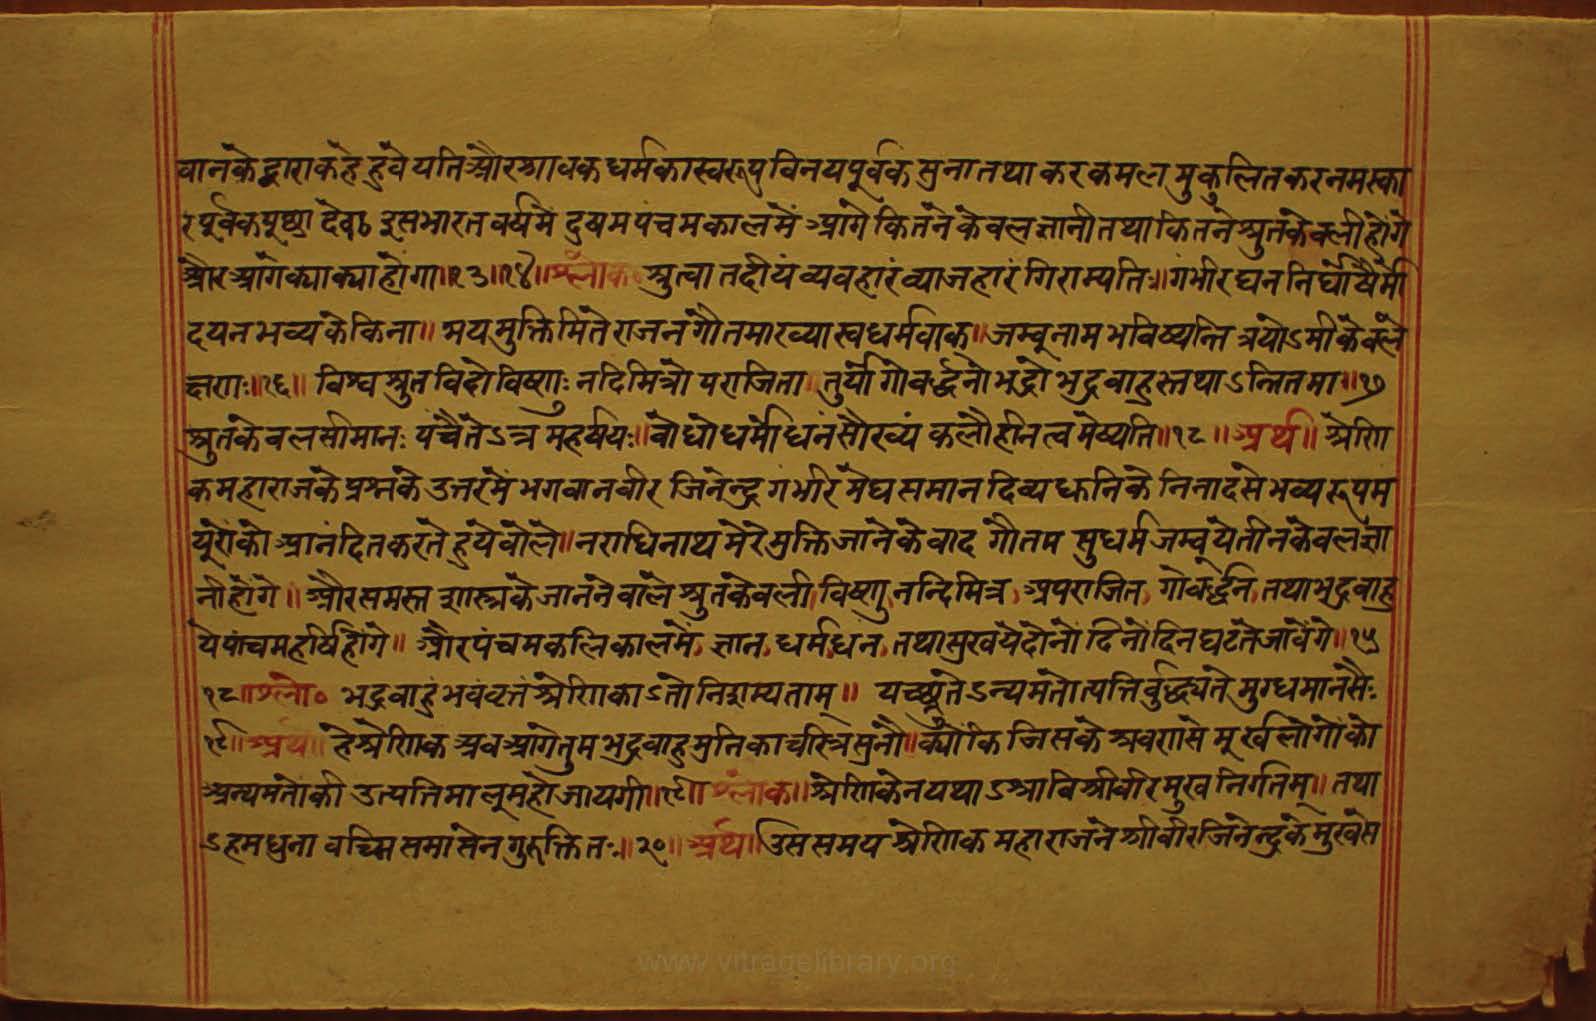 वानके द्वारा कहे हुवे यति और श्रावक धर्मका स्वरूप विनय पूर्वक सुना तथा कर कमल मुकुलित कर नमस्का
र पूर्वक पूछा देव इस भारत वर्षमें दुषम पंचम कालमें आगे कितने केवल ज्ञानी तथा कितने श्रुतकेवली होंगे
और आगे क्या क्या होगा॥१३॥१४॥श्लोक श्रुत्वा तदीयं व्यवहारं व्याजहार गिराम्पतिः॥गंभीर घन निर्घोषैर्मो
दयन भव्यकेकिना॥ मय मुक्तिमिते राजन गौतमाख्या स्वधर्मवाक॥जम्बूनाम भविष्यन्ति त्रयोऽमी केवले
क्षणाः॥१६॥ विश्व श्रुत विदो विष्णुः नदिमित्रो पराजिता तुर्यो गोवर्द्धनो भद्रो भद्रवाहुस्तथाऽन्तिमा॥१७
श्रुतकेवलसीमानः पंचैतेऽत्र महर्षयः॥वोधो धर्मो धनं सौख्यं कलौ हीनत्वमेष्यति॥१८॥अर्थ॥ श्रेणि
क महाराजके प्रश्नके उत्तरमें भगवान वीर जिनेन्द्र गंभीर मेघ समान दिव्य ध्वनिके निनादसे भव्य रूप म
यूरोंको आनंदित करते हुये वोले॥नराधिनाथ मेरे मुक्ति जानेके वाद गौतम सुधर्म जम्बू ये तीन केवल ज्ञा
नी होंगे॥ और समस्त शास्त्रके जानने वाले श्रुतकेवली विष्णु नन्दिमित्र अपराजित गोवर्द्धन तथा भद्रवाहु
ये पांच महर्षि होंगे॥ और पंचम कलिकालमें ज्ञान धर्म धन तथा सुख ये दोनों दिनों दिन घटते जावेंगे॥१५
१८॥श्लो० भद्रवाहुं भवं वृत्तं श्रेणिकाऽतो निशम्यताम्॥ यच्छ्रुतेऽन्यमतोत्पत्ति र्वुद्ध्यते मुग्धमानसैः
१९॥अर्थ॥ हे श्रेणिक अव आगे तुम भद्रवाहु मुनिका चरित्र सुनौ॥क्योंकि जिसके श्रवणसे मूर्ख लोगोंको
अन्य मतोंकी उत्पत्ति मालूम हो जायगी॥१९॥श्लोक॥श्रेणिकेन यथाऽश्रावि श्री वीर मुख निर्गतिम्॥ तथा
ऽहमधुना वच्मि समासेन गुरुक्तितः॥२०॥अर्थ॥ उस समय श्रेणिक महाराजने श्री वीर जिनेन्द्रके मुखसे
www.vitragelibrary.org